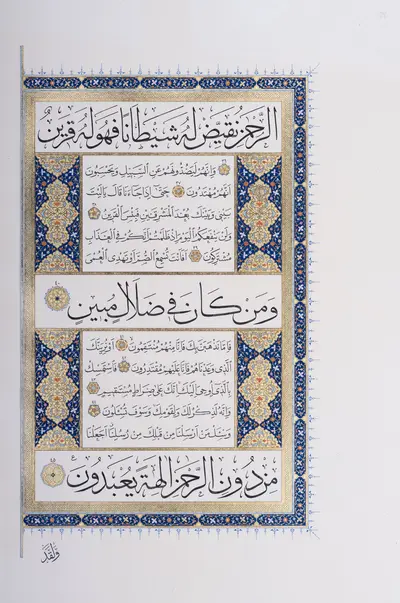 الرَّحْمٰنِ نُقَيِّضْ لَهُ شَيْطَانًا فَهُوَ لَهُ قَرِينٌ
وَاِنَّهُمْ لَيَصُدُّونَهُمْ عَنِ السَّبِيلِ وَيَحْسَبُونَ
اَنَّهُمْ مُهْتَدُونَ حَتّٰى اِذَا جَاءَنَا قَالَ يَا لَيْتَ
بَيْنِي وَبَيْنَكَ بُعْدَ الْمَشْرِقَيْنِ فَبِئْسَ الْقَرِينُ
وَلَنْ يَنْفَعَكُمُ الْيَوْمَ اِذْ ظَلَمْتُمْ اَنَّكُمْ فِي الْعَذَابِ
مُشْتَرِكُونَ اَفَاَنْتَ تُسْمِعُ الصُّمَّ اَوْ تَهْدِي الْعُمْيَ
وَمَنْ كَانَ فِي ضَلَالٍ مُبِينٍ
فَاِمَّا نَذْهَبَنَّ بِكَ فَاِنَّا مِنْهُمْ مُنْتَقِمُونَ اَوْ نُرِيَنَّكَ
الَّذِي وَعَدْنَاهُمْ فَاِنَّا عَلَيْهِمْ مُقْتَدِرُونَ فَاسْتَمْسِكْ
بِالَّذِي اُوحِيَ اِلَيْكَ اِنَّكَ عَلٰى صِرَاطٍ مُسْتَقِيمٍ
وَاِنَّهُ لَذِكْرٌ لَكَ وَلِقَوْمِكَ وَسَوْفَ تُسْئَلُونَ
وَسْئَلْ مَنْ اَرْسَلْنَا مِنْ قَبْلِكَ مِنْ رُسُلِنَا اَجَعَلْنَا
مِنْ دُونِ الرَّحْمٰنِ اٰلِهَةً يُعْبَدُونَ
وَلَقَدْ